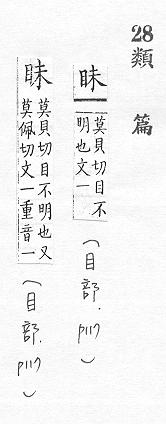 28 類篇
眜 莫貝切目不
明也文一
(目部. p117)
眛 莫貝切目不明也又
莫佩切文一重音一
(目部. p117)